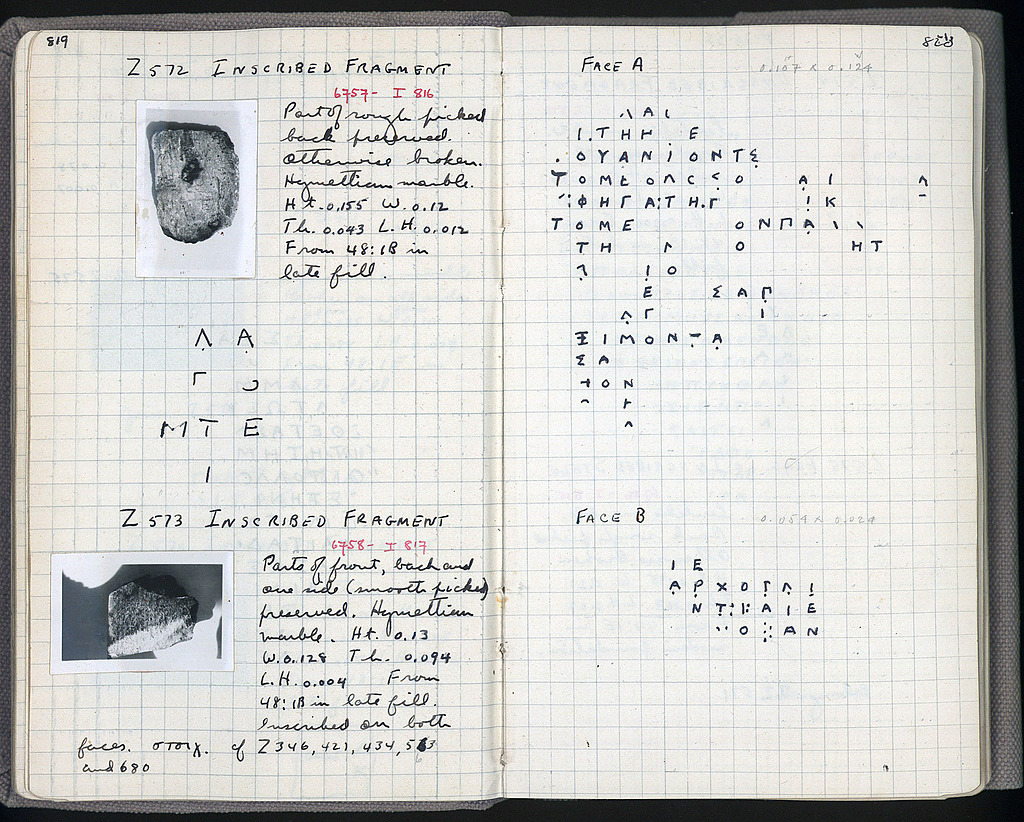 819
Z 572 INSCRIBED FRAGMENT
6757- I 816
Part of rough picked
back preserved.
Otherwise broken.
Hymettian marble.
Ht. 0.155 W. 0.12
Th. 0.043 L.H. 0.012
From 48:1B in
late fill.
Λ Α
Γ
Μ Τ Ε
Ι
Z 573 INSCRIBED FRAGMENT
6758- I 817
Parts of front, back and
one side (smooth picked)
preserved. Hymettian
marble. Ht. 0.13
W. 0.128 Th. 0.094
L.H. 0.004 From
48:1B in late fill.
Inscribed on both
faces. στοιχ. cf Z 346, 421, 434,
and 680
FACE A
0.107 x 0.124
Λ Α Ι
Ι . Τ Η Η Ε
. Ο Υ Α Ν Ι Ο Ν Τ Σ
Τ Ο Μ Ε Ο Λ Ο Α Ι Λ
Φ Η Γ Α Τ Η . Γ Ι Κ
Τ Ο Μ Ε Ο Ν Π Α Ι \
Τ Η Λ Ο Η Τ
Ι Ο
Ε Σ Α Γ
Λ Γ Ι
Ξ Ι Μ Ο Ν Τ Α
Σ Α
Τ Ο Ν
Η
Λ
FACE B
0.054 x 0.024
Ι Ε
Α Ρ Χ Ο Γ Λ Ι
Ν Τ Α Ι Ε
Ο Α Ν